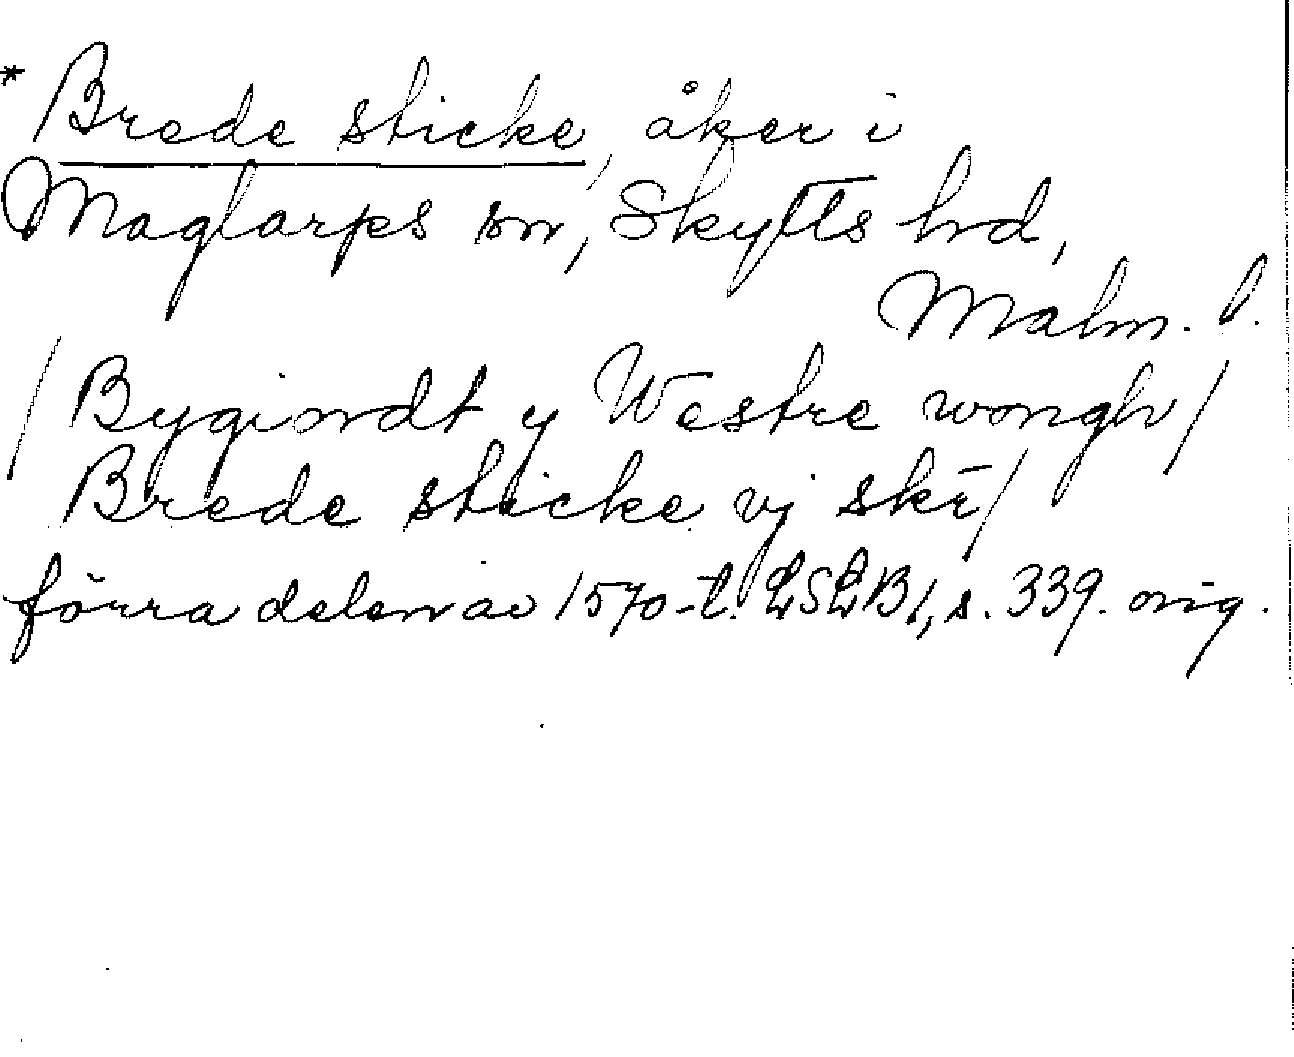 * Brede sticke, åker i
Maglarps sn, Skytts hd,
Malm. l.
/Bygiordt y Westre wongh/
Brede sticke vj skē/
förra delen av 1570-t. LSLB1, s. 339. orig.